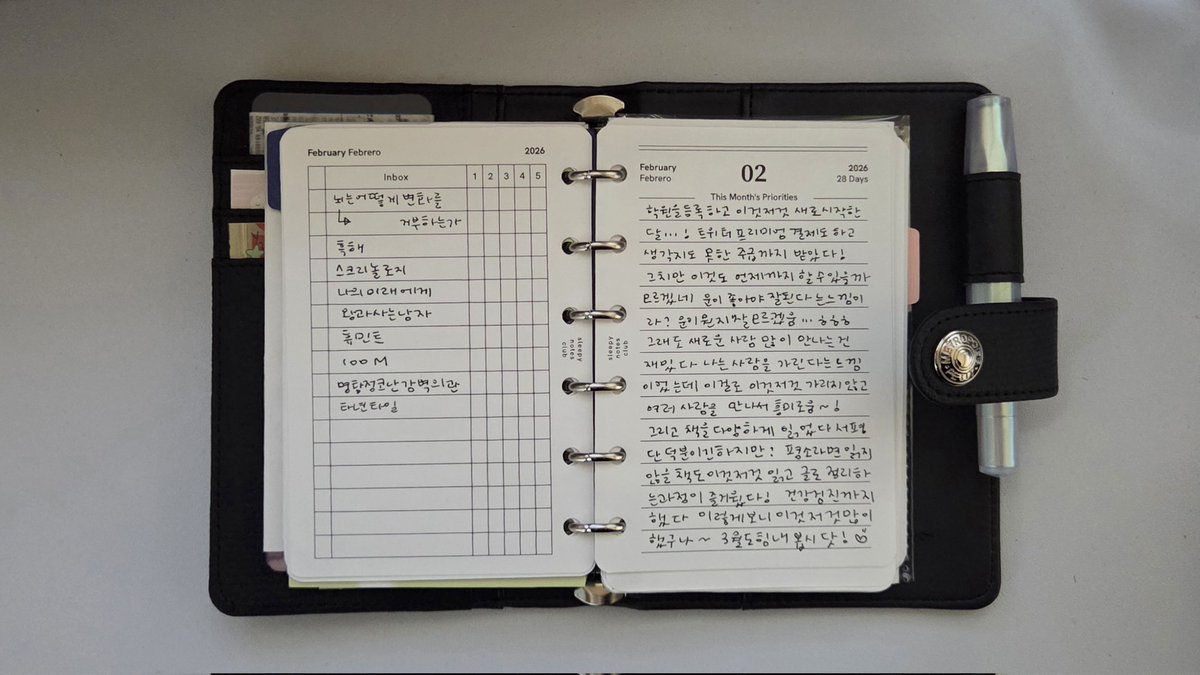 February Febrero 2026
Inbox 1 2 3 4 5
뇌는 어떻게 변화를
↳ 거부하는가
흑해
스크리놀로지
나의 미래에게
왕과 사는 남자
휴민트
100M
명탐정코난 감벽의 관
태년타일
sleepy notes club
February 02 2026
Febrero 28 Days
This Month's Priorities
학원을 등록하고 이것저것 새로 시작한
달...! 트위터 프리미엄 결제도 하고
생각지도 못한 주급까지 받았다!
그치만 이것도 언제까지 할 수 있을까
모르겠네 운이 좋아야 잘된다는 느낌이
라? 운이 뭔지 잘 모르겠음... ㅎㅎㅎ
그래도 새로운 사람 많이 만나는 건
재밌다 나는 사람을 가린다는 느낌
이었는데 이걸로 이것저것 가리지 않고
여러 사람을 만나서 흥미로움~!
그리고 책을 다양하게 읽었다 서평
단 덕분이긴하지만? 평소라면 읽지
않을 책도 이것저것 읽고 글로 정리하
는 과정이 즐거웠다! 건강검진까지
했다 이렇게보니 이것저것 많이
했구나~ 3월도 힘내 봅시닷! ♡
sleepy notes club
METROPOL